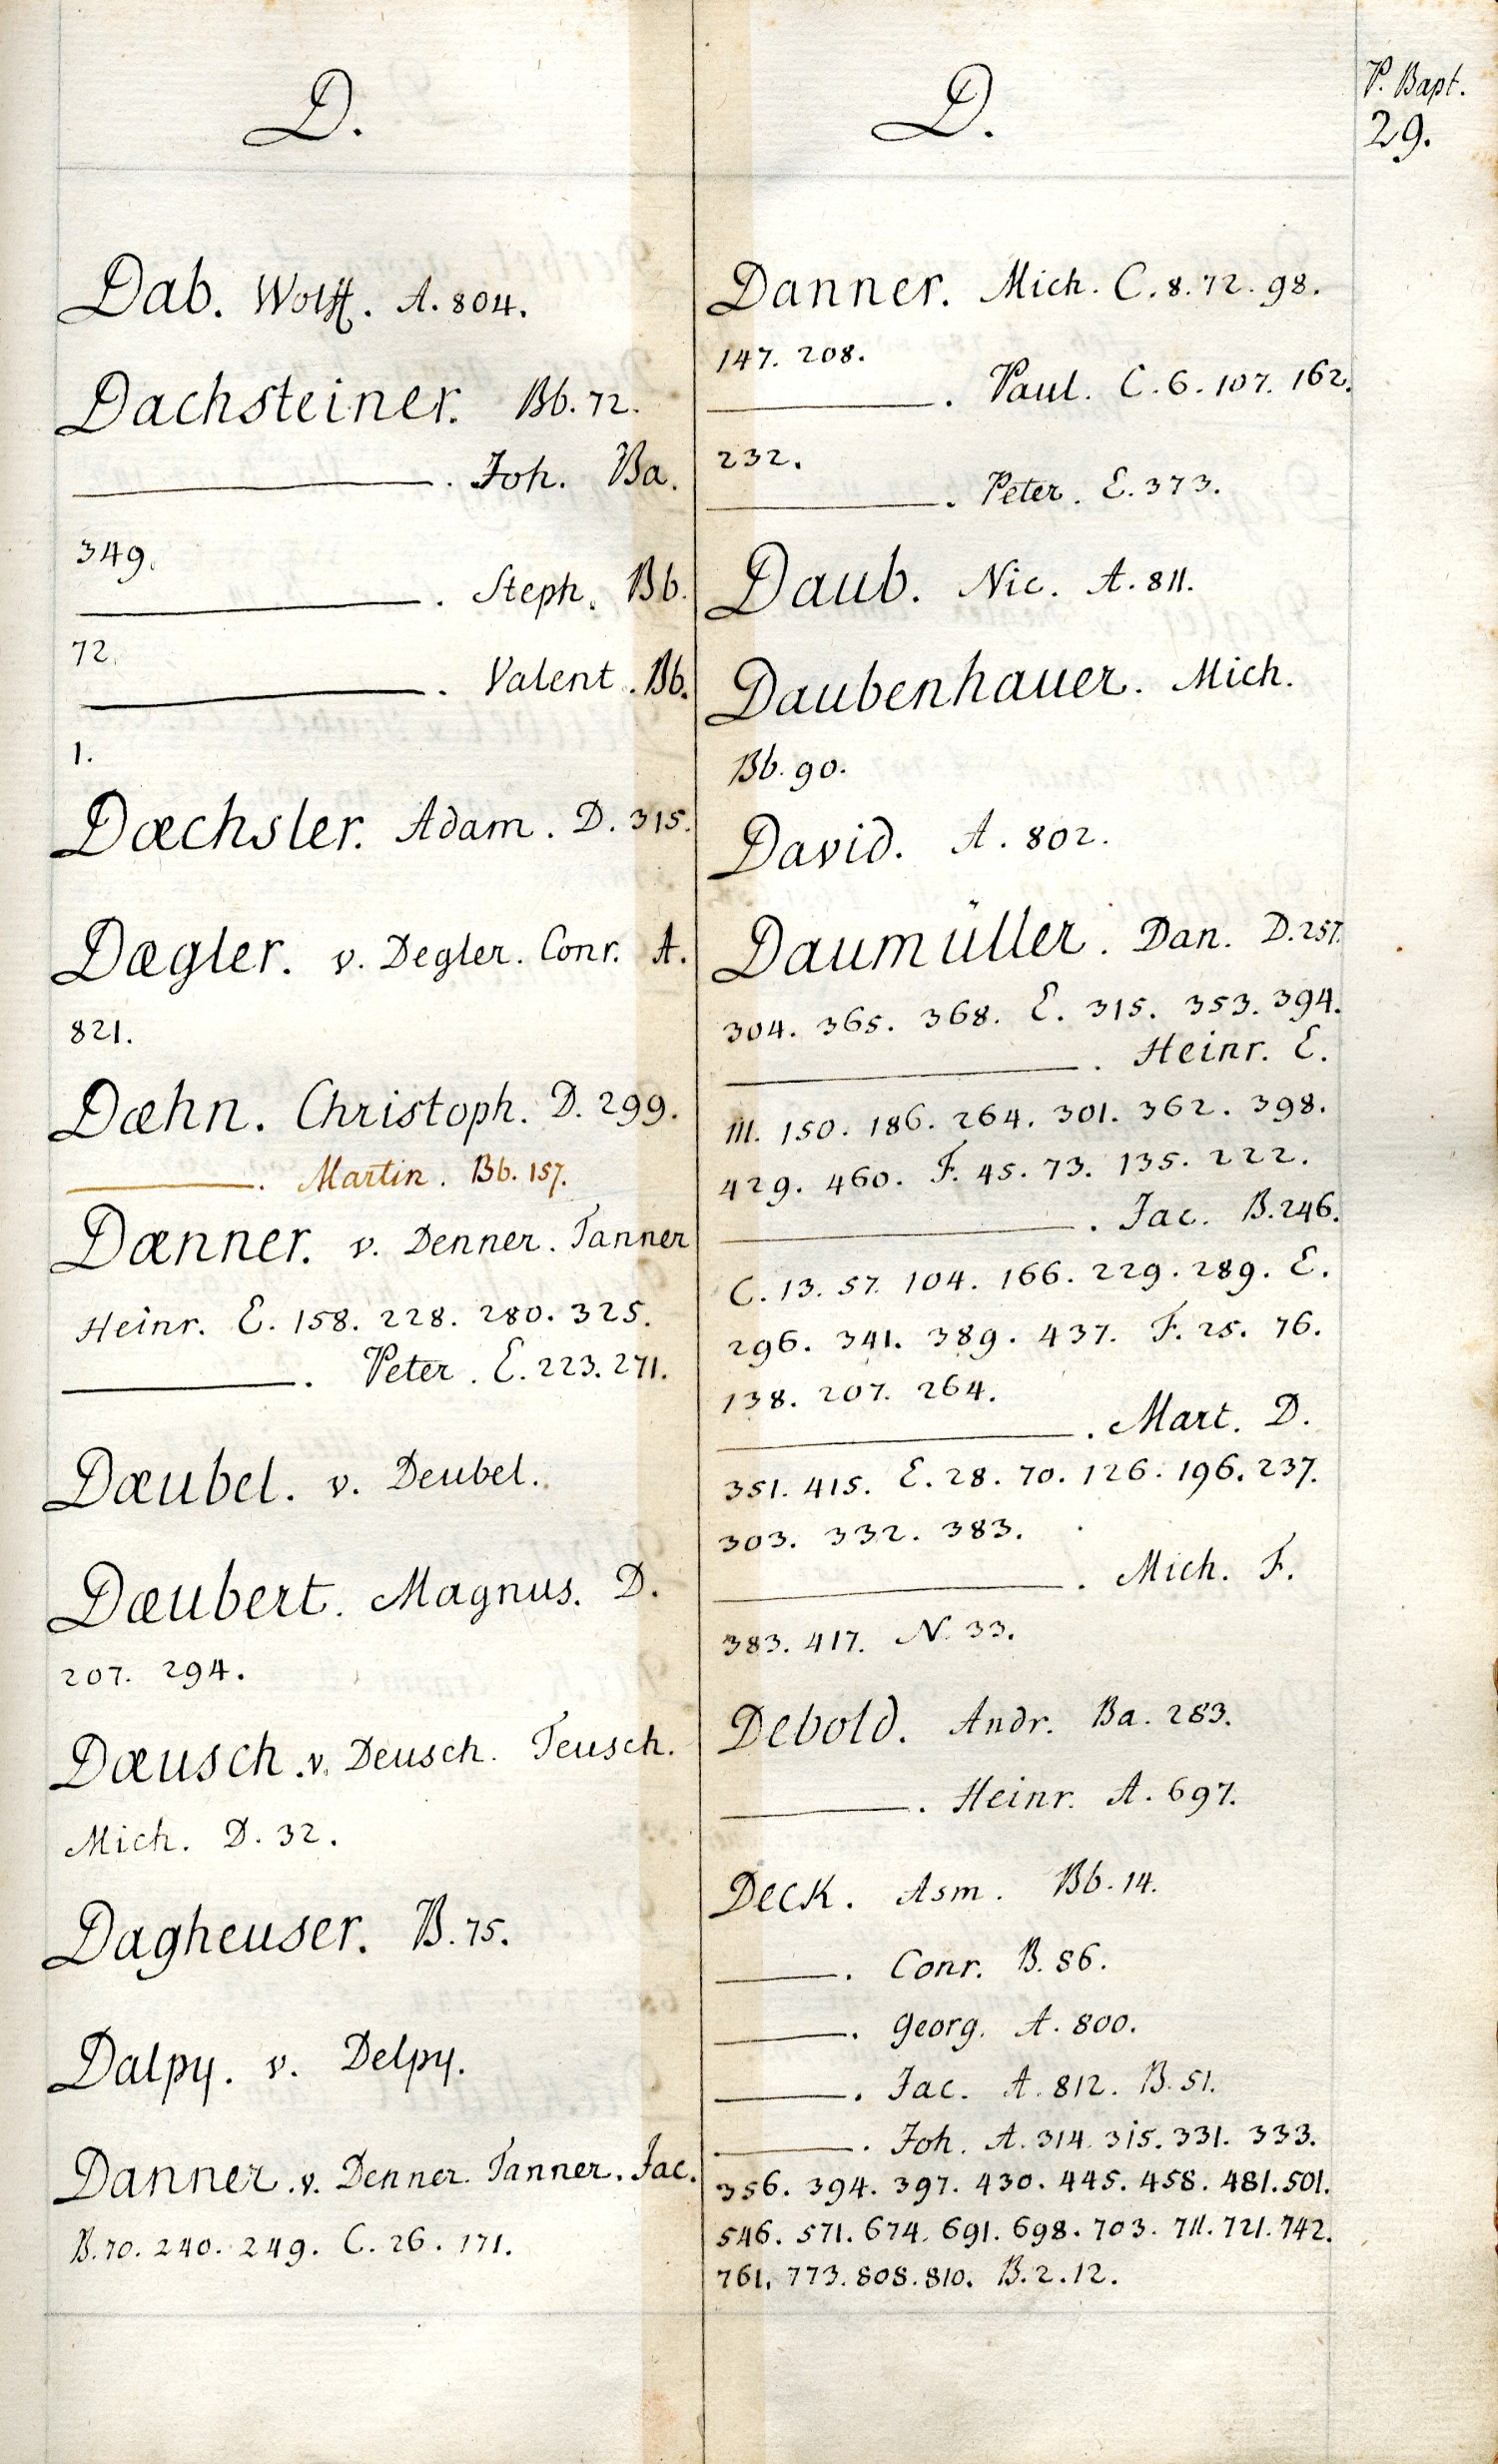 P. Bapt.
29.
D.
Dab. Wolff. A. 804.
Dachsteiner. Bb. 72.
———. Joh. Ba.
349.
———. Steph. Bb.
72.
———. Valent. Bb.
1.
Dæchsler. Adam. D. 315.
Dægler. v. Degler. Conr. A.
821.
Dæhn. Christoph. D. 299.
———. Martin. Bb. 157.
Dænner. v. Denner. Tanner
Heinr. E. 158. 228. 280. 325.
———. Peter. E. 223. 271.
Dæubel. v. Deubel.
Dæubert. Magnus. D.
207. 294.
Dæusch. v. Deusch. Teusch.
Mich. D. 32.
Dagheuser. B. 75.
Dalpy. v. Delpy.
Danner. v. Denner. Tanner. Jac.
B. 70. 240. 249. C. 26. 171.
D.
Danner. Mich. C. 8. 72. 98.
147. 208.
———. Paul. C. 6. 107. 162.
232.
———. Peter. E. 373.
Daub. Nic. A. 811.
Daubenhauer. Mich.
Bb. 90.
David. A. 802.
Daumüller. Dan. D. 257.
304. 365. 368. E. 315. 353. 394.
———. Heinr. E.
111. 150. 186. 264. 301. 362. 398.
429. 460. F. 45. 73. 135. 222.
———. Jac. B. 246.
C. 13. 57. 104. 166. 229. 289. E.
296. 341. 389. 437. F. 25. 76.
138. 207. 264.
———. Mart. D.
351. 415. E. 28. 70. 126. 196. 237.
303. 332. 383.
———. Mich. F.
383. 417. N. 33.
Debold. Andr. Ba. 283.
———. Heinr. A. 697.
Deck. Asm. Bb. 14.
———. Conr. B. 86.
———. Georg. A. 800.
———. Jac. A. 812. B. 51.
———. Joh. A. 314. 315. 331. 333.
356. 394. 397. 430. 445. 458. 481. 501.
546. 571. 674. 691. 698. 703. 711. 721. 742.
761. 773. 808. 810. B. 2. 12.